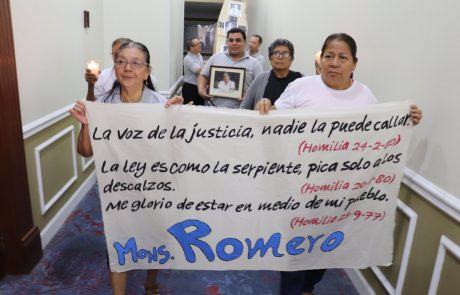 La voz de la justicia, nadie la puede callar.
(Homilia 24-2-80)
La ley es como la serpiente, pica solo a los
descalzos.
(Homilia
-80)
Me glorio de estar en medio de mi pueblo.
(Homilia 25-9-77)
Mons. Romero